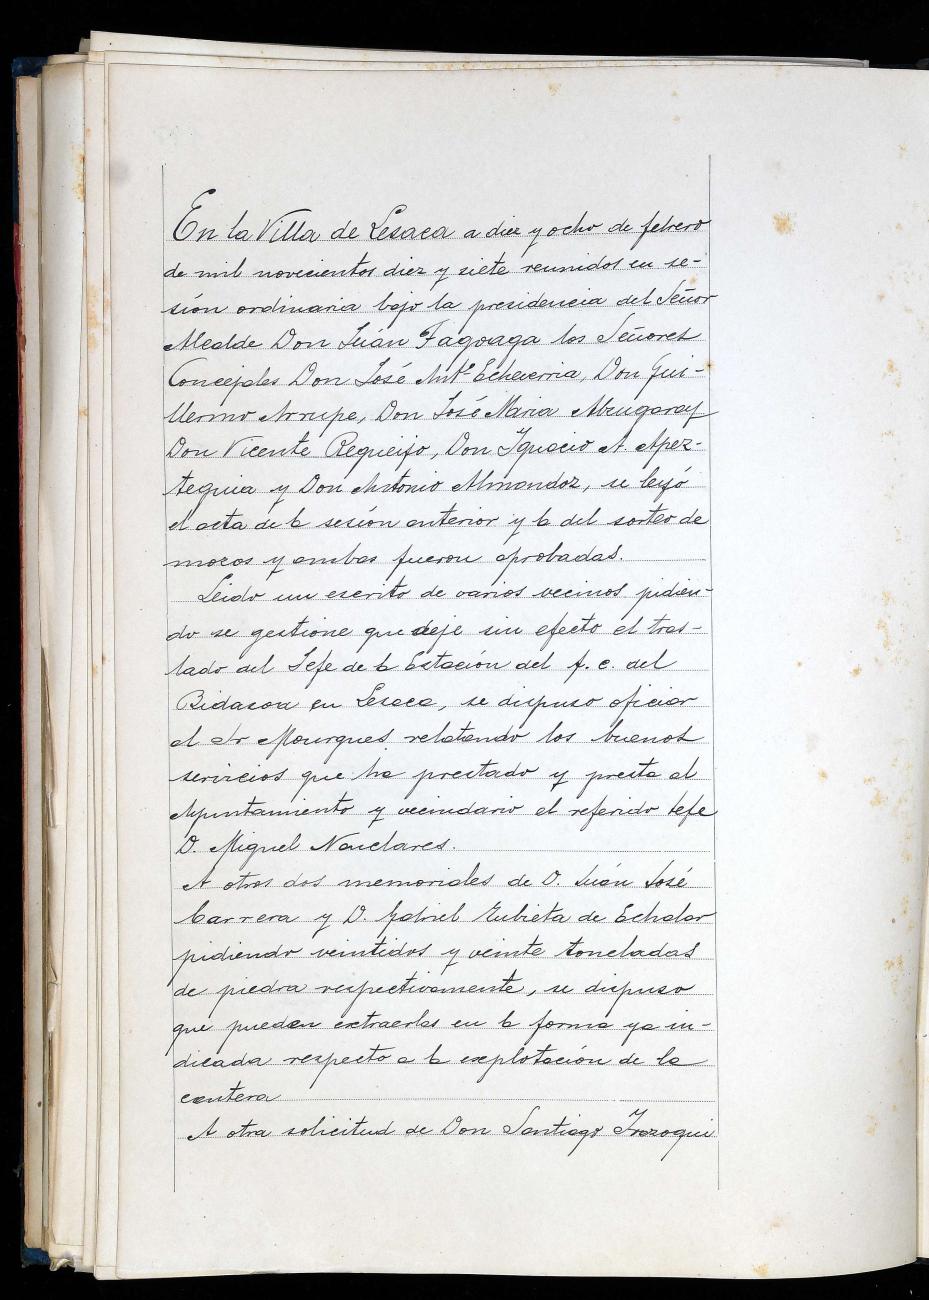 En la Villa de Lesaca a diez y ocho de febrero
de mil novecientos diez y siete reunidos en se-
sión ordinaria bajo la presidencia del Señor
Alcalde Don Juán Fagoaga los Señores
Concejales Don José Antº Echeverria, Don Gui-
llermo Arrupe, Don José Maria Abrugaray
Don Vicente Regueifo, Don Ignacio A. Apez-
teguia y Don Antonio Almandoz, se leyó
el acta de la sesión anterior y la del sorteo de
mozos y ambas fueron aprobadas.
Leido un escrito de varios vecinos pidien-
do se gestione que deje sin efecto el tras-
lado del Jefe de la Estación del f. c. del
Bidasoa en Lesaca, se dispuso oficiar
al Sr Mourgues relatando los buenos
servicios que ha prestado y presta al
Ayuntamiento y vecindario el referido Jefe
D. Miguel Nanclares.
A otros dos memoriales de D. Juán José
Carrera y D. Gabriel Zubieta de Echalar
pidiendo veintidos y veinte toneladas
de piedra respectivamente, se dispuso
que puedan extraerlas en la forma ya in-
dicada respecto a la explotación de la
cantera
A otra solicitud de Don Santiago Irazoqui